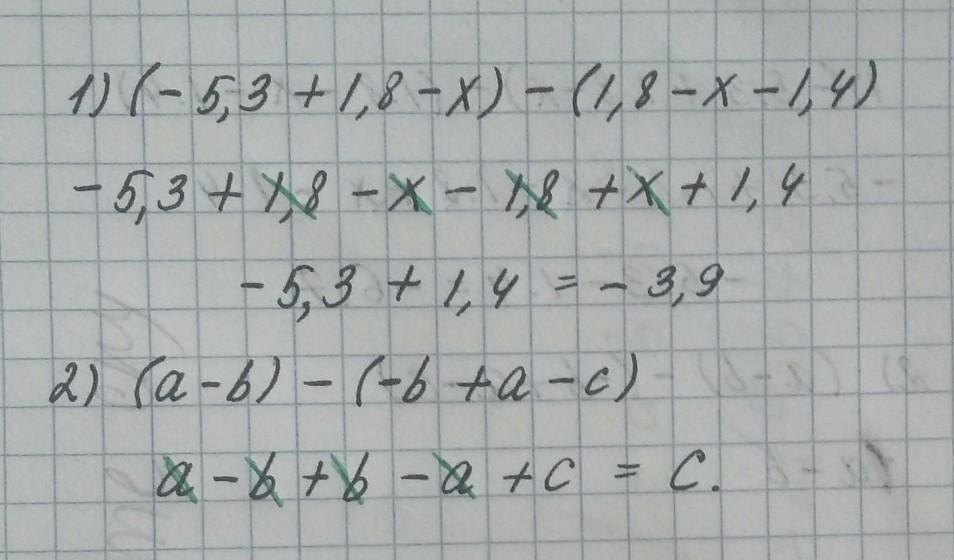 1) (-5,3 + 1,8 - x) - (1,8 - x - 1,4)
-5,3 + 1,8 - x - 1,8 + x + 1,4
-5,3 + 1,4 = -3,9
2) (a - b) - (-b + a - c)
a - b + b - a + c = c.